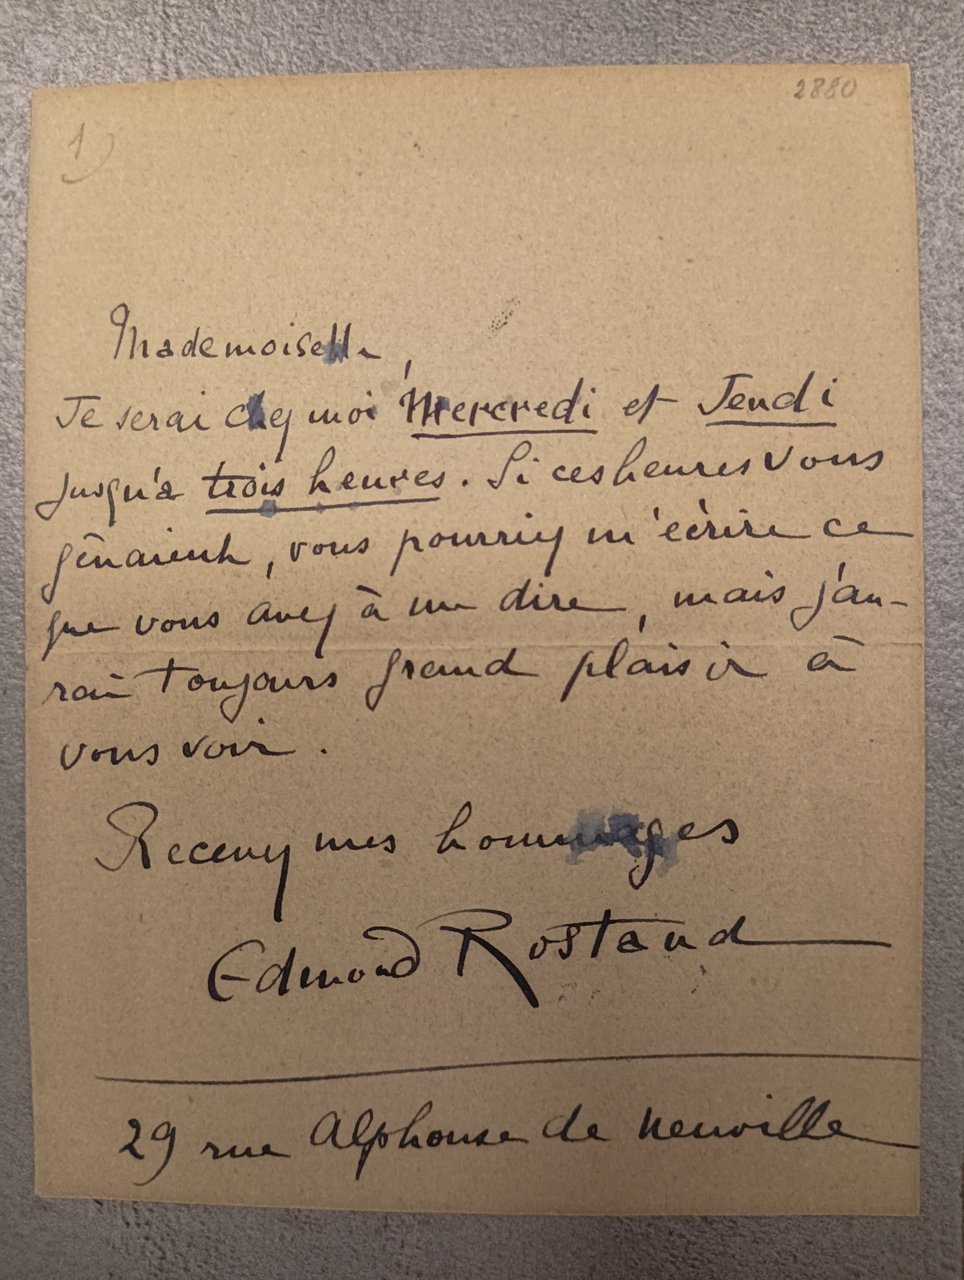 2880
1)
Mademoiselle,
Je serai chez moi Mercredi et Jeudi
jusqu'à trois heures. Si ces heures vous
gênaient, vous pourriez m'écrire ce
que vous avez à me dire, mais j'au-
rai toujours grand plaisir à
vous voir.
Recevez mes hommages
Edmond Rostand
29 rue Alphonse de Neuville